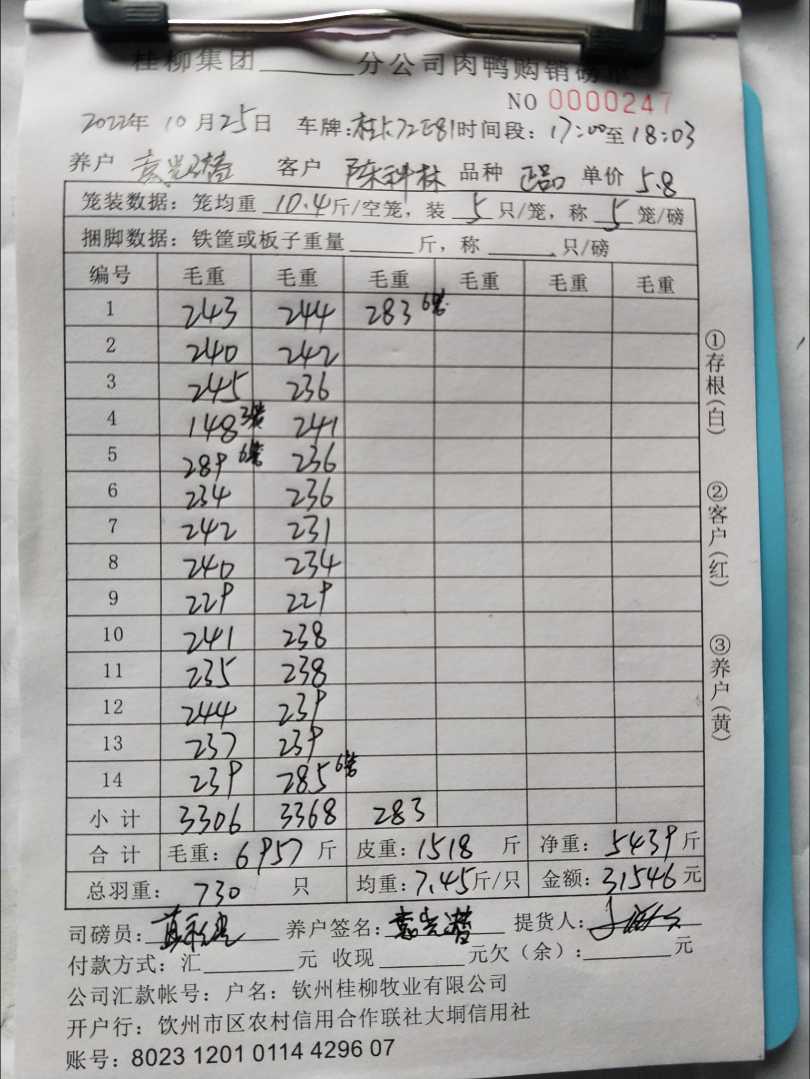 桂柳集团______分公司肉鸭购销磅单
NO 0000247
2022年10月25日 车牌:桂K72E81时间段:17:00至18:03
养户 客户 陈科林 品种 正品 单价 5.8
笼装数据:笼均重 10.4斤/空笼,装 5 只/笼,称 5 笼/磅
捆脚数据:铁筐或板子重量______斤,称______只/磅
编号 毛重 毛重 毛重 毛重 毛重 毛重
1 243 244 283 6笼
2 240 242
3 245 236
4 148 3笼 241
5 289 6笼 236
6 234 236
7 242 231
8 240 234
9 229 229
10 241 238
11 235 238
12 244 239
13 237 239
14 239 285 6笼
小计 3306 3368 283
合计 毛重:6957斤 皮重:1518斤 净重:5439斤
总羽重:730只 均重:7.45斤/只 金额:31546元
司磅员: 养户签名: 提货人:
付款方式:汇______元 收现______元欠(余):______元
公司汇款帐号:户名:钦州桂柳牧业有限公司
开户行:钦州市区农村信用合作联社大垌信用社
账号:8023 1201 0114 4296 07
①存根(白)
②客户(红)
③养户(黄)